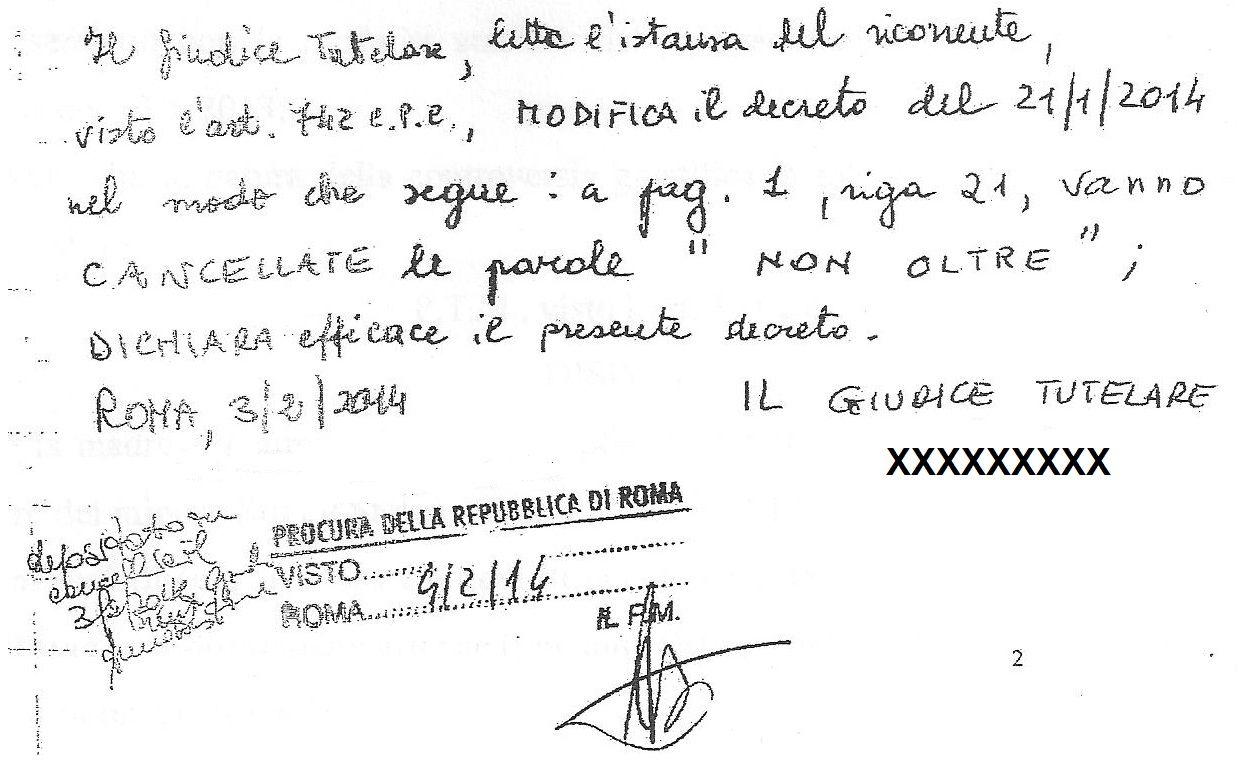 Il Giudice Tutelare, letta l'istanza del ricorrente,
visto l'art. 742 c.p.c., MODIFICA il decreto del 21/1/2014
nel modo che segue: a pag. 1, riga 21, vanno
CANCELLATE le parole "NON OLTRE";
DICHIARA efficace il presente decreto.
ROMA, 3/2/2014 IL GIUDICE TUTELARE
XXXXXXXXX
depositato in
PROCURA DELLA REPUBBLICA DI ROMA
VISTO
ROMA 4/2/14
IL P.M.
2